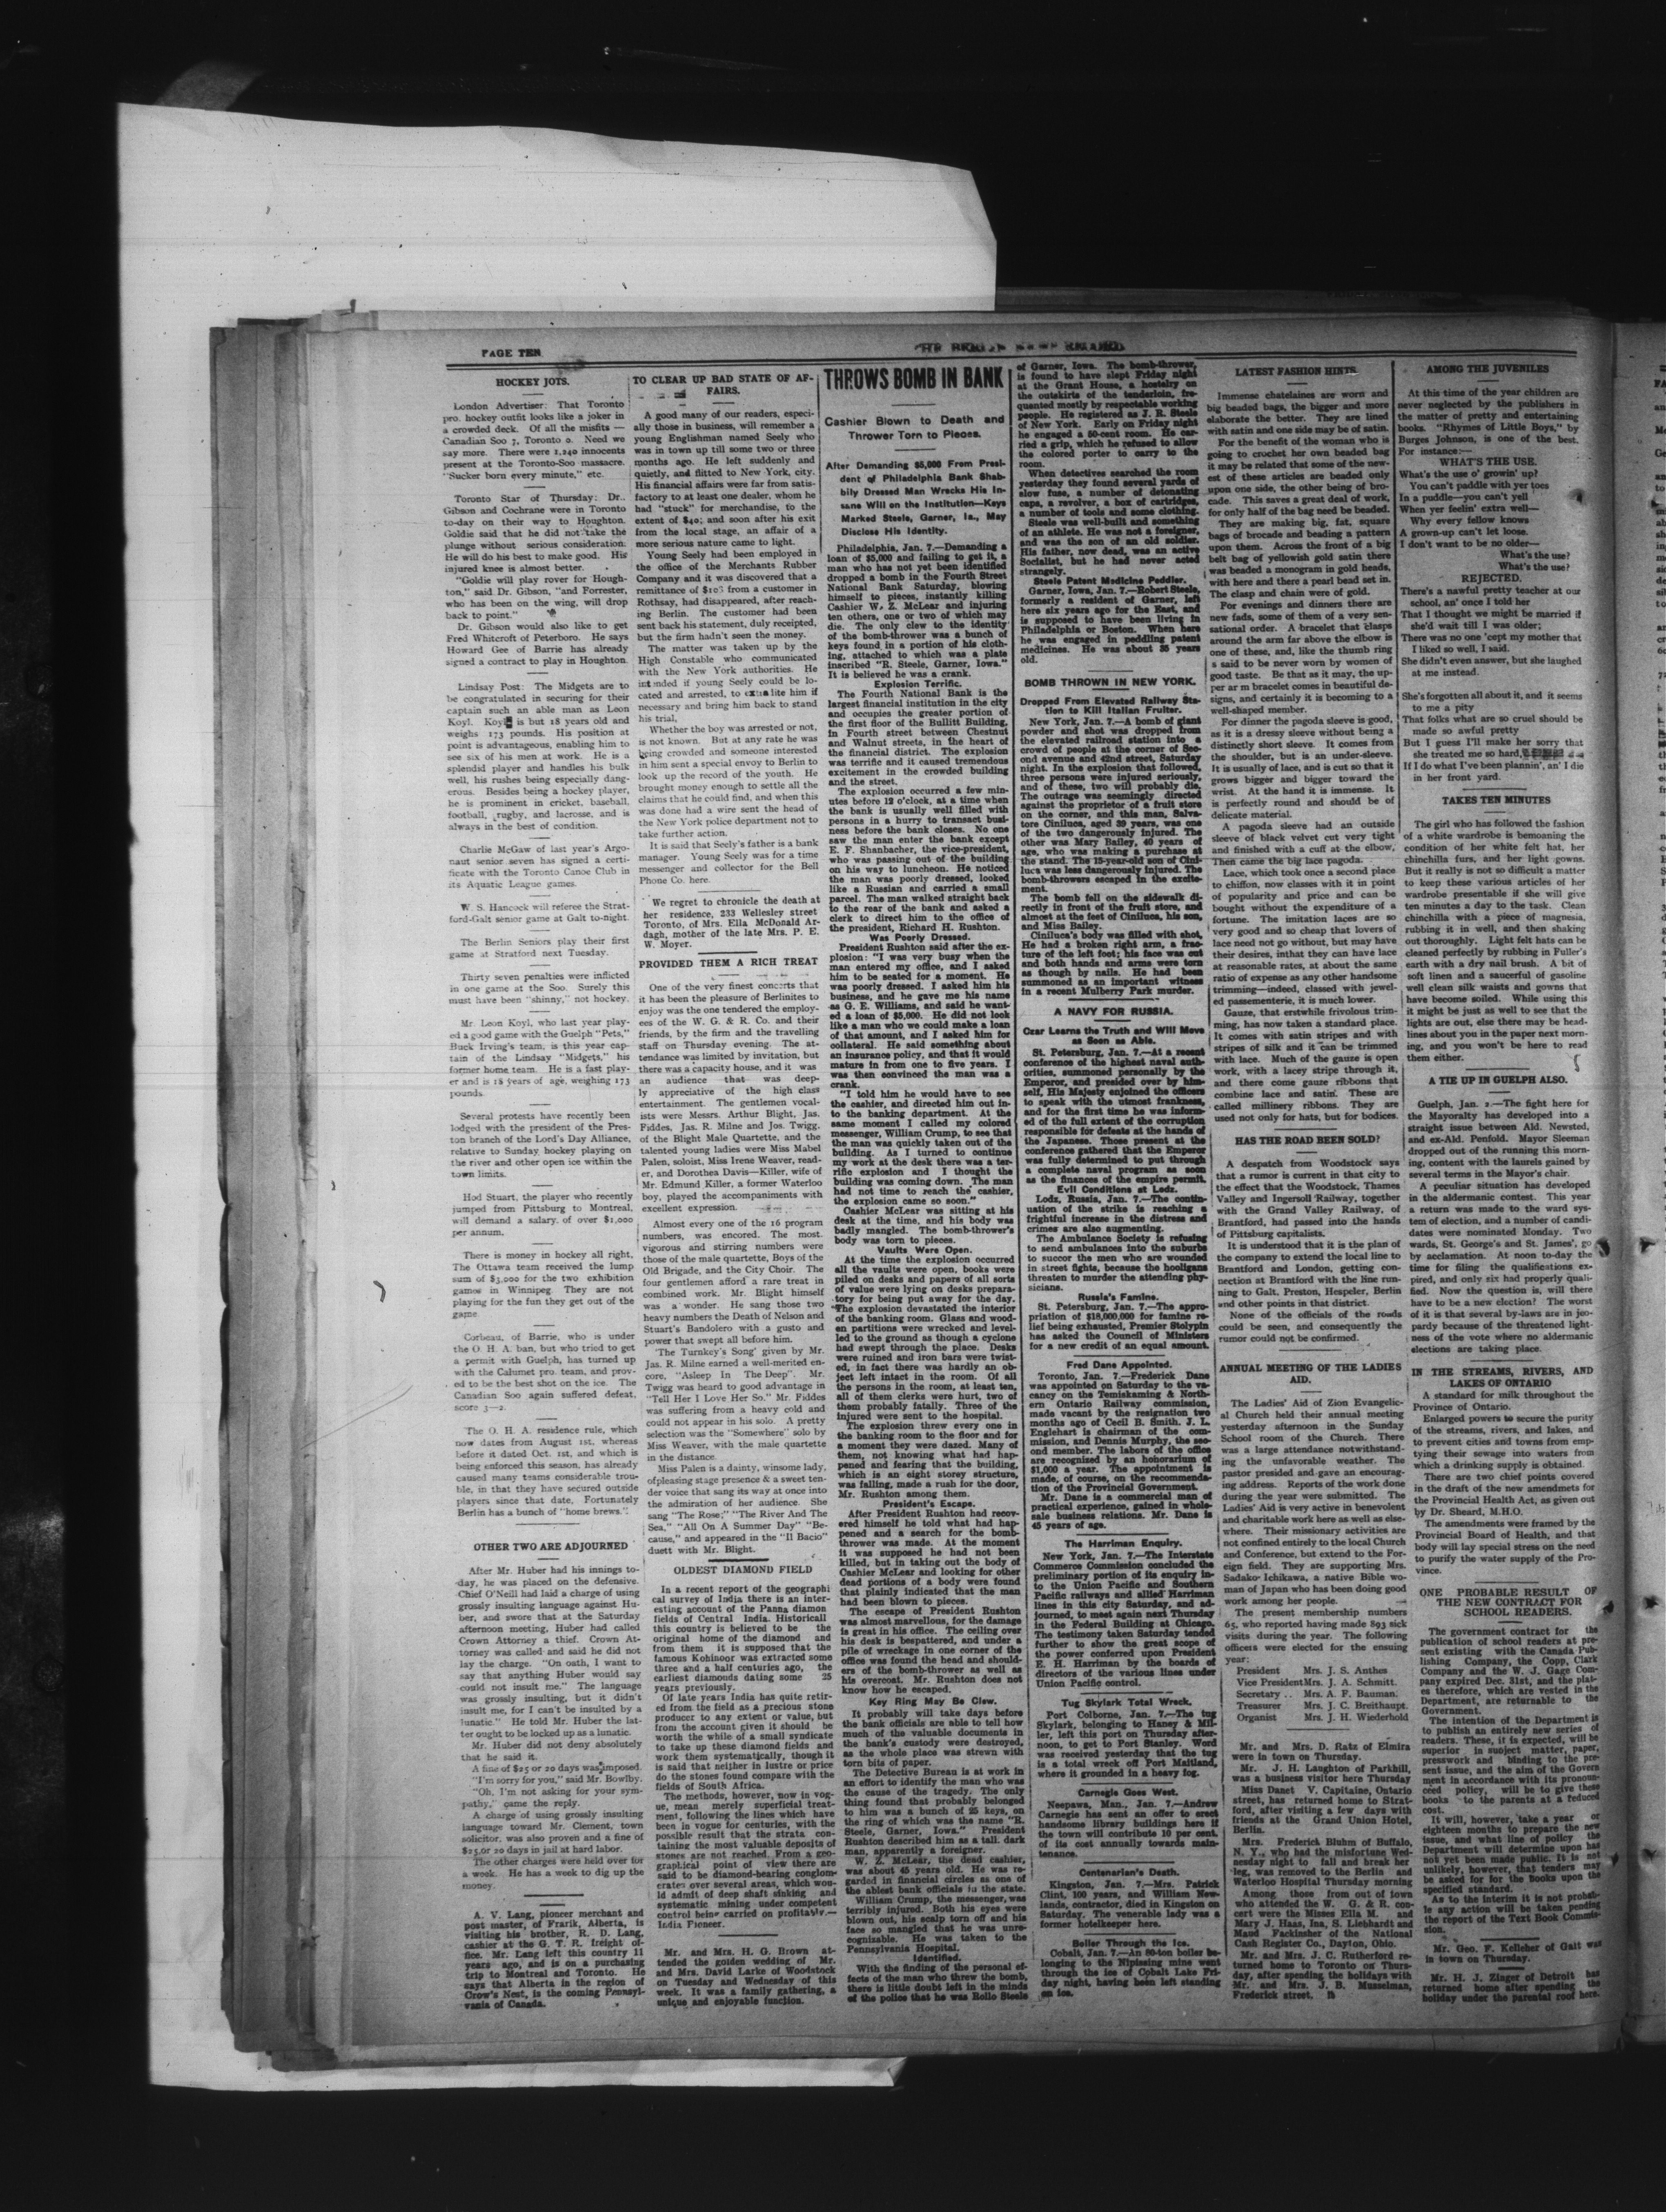 PAGE TEN
HOCKEY JOTS.
London Advertiser: That Toronto
pro. hockey outfit looks like a joker in
a crowded deck. Of all the misfits —
Canadian Soo 7, Toronto 0. Need we
say more. There were 1,240 innocents
present at the Toronto-Soo massacre.
"Sucker born every minute," etc.
Toronto Star of Thursday: Dr.
Gibson and Cochrane were in Toronto
to-day on their way to Houghton.
Goldie said that he did not take the
plunge without serious consideration.
He will do his best to make good. His
injured knee is almost better.
"Goldie will play rover for Hough-
ton," said Dr. Gibson, "and Forrester,
who has been on the wing, will drop
back to point."
Dr. Gibson would also like to get
Fred Whitcroft of Peterboro. He says
Howard Gee of Barrie has already
signed a contract to play in Houghton.
Lindsay Post: The Midgets are to
be congratulated in securing for their
captain such an able man as Leon
Koyl. Koyl is but 18 years old and
weighs 173 pounds. His position at
point is advantageous, enabling him to
see six of his men at work. He is a
splendid player and handles his bulk
well, his rushes being especially dang-
erous. Besides being a hockey player,
he is prominent in cricket, baseball,
football, rugby, and lacrosse, and is
always in the best of condition.
Charlie McGaw of last year's Argo-
naut senior seven has signed a certi-
ficate with the Toronto Canoe Club in
its Aquatic League games.
W. S. Hancock will referee the Strat-
ford-Galt senior game at Galt to-night.
The Berlin Seniors play their first
game at Stratford next Tuesday.
Thirty seven penalties were inflicted
in one game at the Soo. Surely this
must have been "shinny," not hockey.
Mr. Leon Koyl, who last year play-
ed a good game with the Guelph "Pets,"
Buck Irving's team, is this year cap-
tain of the Lindsay "Midgets," his
former home team. He is a fast play-
er and is 18 years of age, weighing 173
pounds.
Several protests have recently been
lodged with the president of the Pres-
ton branch of the Lord's Day Alliance,
relative to Sunday hockey playing on
the river and other open ice within the
town limits.
Hod Stuart, the player who recently
jumped from Pittsburg to Montreal,
will demand a salary of over $1,000
per annum.
There is money in hockey all right,
The Ottawa team received the lump
sum of $3,000 for the two exhibition
games in Winnipeg. They are not
playing for the fun they get out of the
game
Corbeau, of Barrie, who is under
the O. H. A. ban, but who tried to get
a permit with Guelph, has turned up
with the Calumet pro. team, and prov-
ed to be the best shot on the ice. The
Canadian Soo again suffered defeat,
score 3—2.
The O. H. A. residence rule, which
now dates from August 1st, whereas
before it dated Oct. 1st, and which is
being enforced this season, has already
caused many teams considerable trou-
ble, in that they have secured outside
players since that date. Fortunately
Berlin has a bunch of "home brews."
OTHER TWO ARE ADJOURNED
After Mr. Huber had his innings to-
day, he was placed on the defensive.
Chief O'Neill had laid a charge of using
grossly insulting language against Hu-
ber, and swore that at the Saturday
afternoon meeting, Huber had called
Crown Attorney a thief. Crown At-
torney was called and said he did not
lay the charge. "On oath, I want to
say that anything Huber would say
could not insult me." The language
was grossly insulting, but it didn't
insult me, for I can't be insulted by a
lunatic." He told Mr. Huber the lat-
ter ought to be locked up as a lunatic.
Mr. Huber did not deny absolutely
that he said it.
A fine of $25 or 20 days was imposed.
"I'm sorry for you," said Mr. Bowlby.
"Oh, I'm not asking for your sym-
pathy," came the reply.
A charge of using grossly insulting
language toward Mr. Clement, town
solicitor, was also proven and a fine of
$25 or 20 days in jail at hard labor.
The other charges were held over for
a week. He has a week to dig up the
money.
A. V. Lang, pioneer merchant and
post master, of Frarik, Alberta, is
visiting his brother, R. D. Lang,
cashier at the G. T. R. freight of-
fice. Mr. Lang left this country 11
years ago, and is on a purchasing
trip to Montreal and Toronto. He
says that Alberta in the region of
Crow's Nest, is the coming Pennsyl-
vania of Canada.
TO CLEAR UP BAD STATE OF AF-
FAIRS.
A good many of our readers, especi-
ally those in business, will remember a
young Englishman named Seely who
was in town up till some two or three
months ago. He left suddenly and
quietly, and flitted to New York, city.
His financial affairs were far from satis-
factory to at least one dealer, whom he
had "stuck" for merchandise, to the
extent of $40; and soon after his exit
from the local stage, an affair of a
more serious nature came to light.
Young Seely had been employed in
the office of the Merchants Rubber
Company and it was discovered that a
remittance of $105 from a customer in
Rothsay, had disappeared, after reach-
ing Berlin. The customer had been
sent back his statement, duly receipted,
but the firm hadn't seen the money.
The matter was taken up by the
High Constable who communicated
with the New York authorities. He
intended if young Seely could be lo-
cated and arrested, to extradite him if
necessary and bring him back to stand
his trial,
Whether the boy was arrested or not,
is not known. But at any rate he was
being crowded and someone interested
in him sent a special envoy to Berlin to
look up the record of the youth. He
brought money enough to settle all the
claims that he could find, and when this
was done had a wire sent the head of
the New York police department not to
take further action.
It is said that Seely's father is a bank
manager. Young Seely was for a time
messenger and collector for the Bell
Phone Co. here.
We regret to chronicle the death at
her residence, 233 Wellesley street
Toronto, of Mrs. Ella McDonald Ar-
dagh, mother of the late Mrs. P. E.
W. Moyer.
PROVIDED THEM A RICH TREAT
One of the very finest concerts that
it has been the pleasure of Berlinites to
enjoy was the one tendered the employ-
ees of the W. G. & R. Co. and their
friends, by the firm and the travelling
staff on Thursday evening. The at-
tendance was limited by invitation, but
there was a capacity house, and it was
an audience that was deep-
ly appreciative of the high class
entertainment. The gentlemen vocal-
ists were Messrs. Arthur Blight, Jas.
Fiddes, Jas. R. Milne and Jos. Twigg,
of the Blight Male Quartette, and the
talented young ladies were Miss Mabel
Palen, soloist, Miss Irene Weaver, read-
er, and Dorothea Davis—Killer, wife of
Mr. Edmund Killer, a former Waterloo
boy, played the accompaniments with
excellent expression.
Almost every one of the 16 program
numbers, was encored. The most
vigorous and stirring numbers were
those of the male quartette, Boys of the
Old Brigade, and the City Choir. The
four gentlemen afford a rare treat in
combined work. Mr. Blight himself
was a wonder. He sang those two
heavy numbers the Death of Nelson and
Stuart's Bandolero with a gusto and
power that swept all before him.
'The Turnkey's Song' given by Mr.
Jas. R. Milne earned a well-merited en-
core, "Asleep In The Deep". Mr.
Twigg was heard to good advantage in
"Tell Her I Love Her So." Mr. Fiddes
was suffering from a heavy cold and
could not appear in his solo. A pretty
selection was the "Somewhere" solo by
Miss Weaver, with the male quartette
in the distance.
Miss Palen is a dainty, winsome lady,
ofpleasing stage presence & a sweet ten-
der voice that sang its way at once into
the admiration of her audience. She
sang "The Rose;" "The River And The
Sea," "All On A Summer Day" "Be-
cause," and appeared in the "Il Bacio"
duett with Mr. Blight.
OLDEST DIAMOND FIELD
In a recent report of the geographi
cal survey of India there is an inter-
esting account of the Panna diamon
fields of Central India. Historicall
this country is believed to be the
original home of the diamond and
from them it is supposed that the
famous Kohinoor was extracted some
three and a half centuries ago, the
earliest diamonds dating some 25
years previously.
Of late years India has quite retir-
ed from the field as a precious stone
producer to any extent or value, but
from the account given it should be
worth the while of a small syndicate
to take up these diamond fields and
work them systematically, though it
is said that neither in lustre or price
do the stones found compare with the
fields of South Africa.
The methods, however, now in vog-
ue, mean merely superficial treat-
ment, following the lines which have
been in vogue for centuries, with the
possible result that the strata con-
taining the most valuable deposits of
stones are not reached. From a geo-
graphical point of view there are
said to be diamond-bearing conglom-
crates over several areas, which wou-
ld admit of deep shaft sinking and
systematic mining under competent
control being carried on profitably.—
India Pioneer.
Mr. and Mrs. H. G. Brown at-
tended the golden wedding of Mr.
and Mrs. David Larke of Woodstock
on Tuesday and Wednesday of this
week. It was a family gathering, a
unique and enjoyable function.
THROWS BOMB IN BANK
Cashier Blown to Death and
Thrower Torn to Pieces.
After Demanding $5,000 From Presi-
dent of Philadelphia Bank Shab-
bily Dressed Man Wrecks His In-
sane Will on the Institution—Keys
Marked Steele, Garner, Ia., May
Disclose His Identity.
Philadelphia, Jan. 7.—Demanding a
loan of $5,000 and failing to get it, a
man who has not yet been identified
dropped a bomb in the Fourth Street
National Bank Saturday, blowing
himself to pieces, instantly killing
Cashier W. Z. McLear and injuring
ten others, one or two of which may
die. The only clew to the identity
of the bomb-thrower was a bunch of
keys found in a portion of his cloth-
ing, attached to which was a plate
inscribed "R. Steele, Garner, Iowa."
It is believed he was a crank.
Explosion Terrific.
The Fourth National Bank is the
largest financial institution in the city
and occupies the greater portion of
the first floor of the Bullitt Building,
in Fourth street between Chestnut
and Walnut streets, in the heart of
the financial district. The explosion
was terrific and it caused tremendous
excitement in the crowded building
and the street.
The explosion occurred a few min-
utes before 12 o'clock, at a time when
the bank is usually well filled with
persons in a hurry to transact busi-
ness before the bank closes. No one
saw the man enter the bank except
E. F. Shanbacher, the vice-president,
who was passing out of the building
on his way to luncheon. He noticed
the man was poorly dressed, looked
like a Russian and carried a small
parcel. The man walked straight back
to the rear of the bank and asked a
clerk to direct him to the office of
the president, Richard H. Rushton.
Was Poorly Dressed.
President Rushton said after the ex-
plosion: "I was very busy when the
man entered my office, and I asked
him to be seated for a moment. He
was poorly dressed. I asked him his
business, and he gave me his name
as G. E. Williams, and said he want-
ed a loan of $5,000. He did not look
like a man who we could make a loan
of that amount, and I asked him for
collateral. He said something about
an insurance policy, and that it would
mature in from one to five years. I
was then convinced the man was a
crank.
"I told him he would have to see
the cashier, and directed him out in-
to the banking department. At the
same moment I called my colored
messenger, William Crump, to see that
the man was quickly taken out of the
building. As I turned to continue
my work at the desk there was a ter-
rific explosion and I thought the
building was coming down. The man
had not time to reach the cashier,
the explosion came so soon."
Cashier McLear was sitting at his
desk at the time, and his body was
badly mangled. The bomb-thrower's
body was torn to pieces.
Vaults Were Open.
At the time the explosion occurred
all the vaults were open, books were
piled on desks and papers of all sorts
of value were lying on desks prepara-
tory for being put away for the day.
The explosion devastated the interior
of the banking room. Glass and wood-
en partitions were wrecked and level-
led to the ground as though a cyclone
had swept through the place. Desks
were ruined and iron bars were twist-
ed, in fact there was hardly an ob-
ject left intact in the room. Of all
the persons in the room, at least ten,
all of them clerks were hurt, two of
them probably fatally. Three of the
injured were sent to the hospital.
The explosion threw every one in
the banking room to the floor and for
a moment they were dazed. Many of
them, not knowing what had hap-
pened and fearing that the building,
which is an eight storey structure,
was falling, made a rush for the door,
Mr. Rushton among them.
President's Escape.
After President Rushton had recov-
ered himself he told what had hap-
pened and a search for the bomb-
thrower was made. At the moment
it was supposed he had not been
killed, but in taking out the body of
Cashier McLear and looking for other
dead portions of a body were found
that plainly indicated that the man
had been blown to pieces.
The escape of President Rushton
was almost marvellous, for the damage
is great in his office. The ceiling over
his desk is bespattered, and under a
pile of wreckage in one corner of the
office was found the head and should-
ers of the bomb-thrower as well as
his overcoat. Mr. Rushton does not
know how he escaped.
Key Ring May Be Clew.
It probably will take days before
the bank officials are able to tell how
much of the valuable documents in
the bank's custody were destroyed,
as the whole place was strewn with
torn bits of paper.
The Detective Bureau is at work in
an effort to identify the man who was
the cause of the tragedy. The only
thing found that probably belonged
to him was a bunch of 25 keys, on
the ring of which was the name "R.
Steele, Garner, Iowa." President
Rushton described him as a tall, dark
man, apparently a foreigner.
W. Z. McLear, the dead cashier,
was about 45 years old. He was re-
garded in financial circles as one of
the ablest bank officials in the state.
William Crump, the messenger, was
terribly injured. Both his eyes were
blown out, his scalp torn off and his
face so mangled that he was unre-
cognizable. He was taken to the
Pennsylvania Hospital.
Identified.
With the finding of the personal ef-
fects of the man who threw the bomb,
there is little doubt left in the minds
of the police that he was Rollo Steele
of Garner, Iowa. The bomb-thrower,
is found to have slept Friday night
at the Grant House, a hostelry on
the outskirts of the tenderloin, fre-
quented mostly by respectable working
people. He registered as J. R. Steele
of New York. Early on Friday night
he engaged a 50-cent room. He car-
ried a grip, which he refused to allow
the colored porter to carry to the
room.
When detectives searched the room
yesterday they found several yards of
slow fuse, a number of detonating
caps, a revolver, a box of cartridges,
a number of tools and some clothing.
Steele was well-built and something
of an athlete. He was not a foreigner,
and was the son of an old soldier.
His father, now dead, was an active
Socialist, but he had never acted
strangely.
Steele Patent Medicine Peddler.
Garner, Iowa, Jan. 7.—Robert Steele,
formerly a resident of Garner, left
here six years ago for the East, and
is supposed to have been living in
Philadelphia or Boston. When here
he was engaged in peddling patent
medicines. He was about 35 years
old.
BOMB THROWN IN NEW YORK.
Dropped From Elevated Railway Sta-
tion to Kill Italian Fruiter.
New York, Jan. 7.—A bomb of giant
powder and shot was dropped from
the elevated railroad station into a
crowd of people at the corner of Sec-
ond avenue and 42nd street, Saturday
night. In the explosion that followed,
three persons were injured seriously,
and of these, two will probably die.
The outrage was seemingly directed
against the proprietor of a fruit store
on the corner, and this man, Salva-
tore Ciniluca, aged 39 years, was one
of the two dangerously injured. The
other was Mary Bailey, 40 years of
age, who was making a purchase at
the stand. The 13-year-old son of Cini-
luca was less dangerously injured. The
bomb-throwers escaped in the excite-
ment.
The bomb fell on the sidewalk di-
rectly in front of the fruit store, and
almost at the feet of Ciniluca, his son,
and Miss Bailey.
Ciniluca's body was filled with shot.
He had a broken right arm, a frac-
ture of the left foot; his face was out
and both hands and arms were torn
as though by nails. He had been
summoned as an important witness
in a recent Mulberry Park murder.
A NAVY FOR RUSSIA.
Czar Learns the Truth and Will Move
as Soon as Able.
St. Petersburg, Jan. 7.—At a recent
conference of the highest naval auth-
orities, summoned personally by the
Emperor, and presided over by him-
self, His Majesty enjoined the officers
to speak with the utmost frankness,
and for the first time he was inform-
ed of the full extent of the corruption
responsible for defeats at the hands of
the Japanese. Those present at the
conference gathered that the Emperor
was fully determined to put through
a complete naval program as soon
as the finances of the empire permit.
Evil Conditions at Lodz.
Lodz, Russia, Jan. 7.—The contin-
uation of the strike is reaching a
frightful increase in the distress and
crimes are also augmenting.
The Ambulance Society is refusing
to send ambulances into the suburbs
to succor the men who are wounded
in street fights, because the hooligans
threaten to murder the attending phy-
sicians.
Russia's Famine.
St. Petersburg, Jan. 7.—The appro-
priation of $18,000,000 for famine re-
lief being exhausted, Premier Stolypin
has asked the Council of Ministers
for a new credit of an equal amount.
Fred Dane Appointed.
Toronto, Jan. 7.—Frederick Dane
was appointed on Saturday to the va-
cancy on the Temiskaming & North-
ern Ontario Railway commission,
made vacant by the resignation two
months ago of Cecil B. Smith. J. L.
Englehart is chairman of the com-
mission, and Dennis Murphy, the sec-
ond member. The labors of the office
are recognized by an honorarium of
$1,000 a year. The appointment is
made, of course, on the recommenda-
tion of the Provincial Government.
Mr. Dane is a commercial man of
practical experience, gained in whole-
sale business relations. Mr. Dane is
45 years of age.
The Harriman Enquiry.
New York, Jan. 7.—The Interstate
Commerce Commission concluded the
preliminary portion of its enquiry in-
to the Union Pacific and Southern
Pacific railways and allied Harriman
lines in this city Saturday, and ad-
journed, to meet again next Thursday
in the Federal Building at Chicago.
The testimony taken Saturday tended
further to show the great scope of
the power conferred upon President
E. H. Harriman by the boards of
directors of the various lines under
Union Pacific control.
Tug Skylark Total Wreck.
Port Colborne, Jan. 7.—The tug
Skylark, belonging to Haney & Mil-
ler, left this port on Thursday after-
noon, to get to Port Stanley. Word
was received yesterday that the tug
is a total wreck off Port Maitland,
where it grounded in a heavy fog.
Carnegie Goes West.
Neepawa, Man., Jan. 7.—Andrew
Carnegie has sent an offer to erect
handsome library buildings here if
the town will contribute 10 per cent.
of its cost annually towards main-
tenance.
Centenarian's Death.
Kingston, Jan. 7.—Mrs. Patrick
Clint, 100 years, and William New-
lands, contractor, died in Kingston on
Saturday. The venerable lady was a
former hotelkeeper here.
Boiler Through the Ice.
Cobalt, Jan. 7.—An 80-ton boiler be-
longing to the Nipissing mine went
through the ice of Cobalt Lake Fri-
day night, having been left standing
on ice.
LATEST FASHION HINTS.
Immense chatelaines are worn and
big beaded bags, the bigger and more
elaborate the better. They are lined
with satin and one side may be of satin.
For the benefit of the woman who is
going to crochet her own beaded bag
it may be related that some of the new-
est of these articles are beaded only
upon one side, the other being of bro-
cade. This saves a great deal of work,
for only half of the bag need be beaded.
They are making big, fat, square
bags of brocade and beading a pattern
upon them. Across the front of a big
belt bag of yellowish gold satin there
was beaded a monogram in gold beads,
with here and there a pearl bead set in.
The clasp and chain were of gold.
For evenings and dinners there are
new fads, some of them of a very sen-
sational order. A bracelet that clasps
around the arm far above the elbow is
one of these, and, like the thumb ring
s said to be never worn by women of
good taste. Be that as it may, the up-
per ar m bracelet comes in beautiful de-
signs, and certainly it is becoming to a
well-shaped member.
For dinner the pagoda sleeve is good,
as it is a dressy sleeve without being a
distinctly short sleeve. It comes from
the shoulder, but is an under-sleeve.
It is usually of lace, and is cut so that it
grows bigger and bigger toward the
wrist. At the hand it is immense. It
is perfectly round and should be of
delicate material.
A pagoda sleeve had an outside
sleeve of black velvet cut very tight
and finished with a cuff at the elbow,
Then came the big lace pagoda.
Lace, which took once a second place
to chiffon, now classes with it in point
of popularity and price and can be
bought without the expenditure of a
fortune. The imitation laces are so
very good and so cheap that lovers of
lace need not go without, but may have
their desires, inthat they can have lace
at reasonable rates, at about the same
ratio of expense as any other handsome
trimming—indeed, classed with jewel-
ed passementerie, it is much lower.
Gauze, that erstwhile frivolous trim-
ming, has now taken a standard place.
It comes with satin stripes and with
stripes of silk and it can be trimmed
with lace. Much of the gauze is open
work, with a lacey stripe through it,
and there come gauze ribbons that
combine lace and satin. These are
called millinery ribbons. They are
used not only for hats, but for bodices.
HAS THE ROAD BEEN SOLD?
A despatch from Woodstock says
that a rumor is current in that city to
the effect that the Woodstock, Thames
Valley and Ingersoll Railway, together
with the Grand Valley Railway, of
Brantford, had passed into the hands
of Pittsburg capitalists.
It is understood that it is the plan of
the company to extend the local line to
Brantford and London, getting con-
nection at Brantford with the line run-
ning to Galt, Preston, Hespeler, Berlin
and other points in that district.
None of the officials of the roads
could be seen, and consequently the
rumor could not be confirmed.
ANNUAL MEETING OF THE LADIES
AID.
The Ladies' Aid of Zion Evangelic-
al Church held their annual meeting
yesterday afternoon in the Sunday
School room of the Church. There
was a large attendance notwithstand-
ing the unfavorable weather. The
pastor presided and gave an encourag-
ing address. Reports of the work done
during the year were submitted. The
Ladies' Aid is very active in benevolent
and charitable work here as well as else-
where. Their missionary activities are
not confined entirely to the local Church
and Conference, but extend to the For-
eign field. They are supporting Mrs.
Sadako Ichikawa, a native Bible wo-
man of Japan who has been doing good
work among her people.
The present membership numbers
65, who reported having made 893 sick
visits during the year. The following
officers were elected for the ensuing
year:
President Mrs. J. S. Anthes
Vice President Mrs. J. A. Schmitt.
Secretary .. Mrs. A. F. Bauman.
Treasurer Mrs. J. C. Breithaupt.
Organist Mrs. J. H. Wiederhold
Mr. and Mrs. D. Ratz of Elmira
were in town on Thursday.
Mr. J. H. Laughton of Parkhill,
was a business visitor here Thursday
Miss Danet V. Capitaine, Ontario
street, has returned home to Strat-
ford, after visiting a few days with
friends at the Grand Union Hotel,
Berlin.
Mrs. Frederick Bluhm of Buffalo,
N. Y., who had the misfortune Wed-
nesday night to fall and break her
leg, was removed to the Berlin and
Waterloo Hospital Thursday morning
Among those from out of town
who attended the W. G. & R. con-
cert were the Misses Ella M. and
Mary J. Haas, Ina, S. Liebhardt and
Maud Fackinsher of the National
Cash Register Co., Dayton, Ohio.
Mr. and Mrs. J. C. Rutherford re-
turned home to Toronto on Thurs-
day, after spending the holidays with
Mr. and Mrs. J. B. Musselman,
Frederick street.
AMONG THE JUVENILES
At this time of the year children are
never neglected by the publishers in
the matter of pretty and entertaining
books. "Rhymes of Little Boys," by
Burges Johnson, is one of the best.
For instance:—
WHAT'S THE USE.
What's the use o' growin' up?
You can't paddle with yer toes
In a puddle—you can't yell
When yer feelin' extra well—
Why every fellow knows
A grown-up can't let loose.
I don't want to be no older—
What's the use?
What's the use?
REJECTED.
There's a nawful pretty teacher at our
school, an' once I told her
That I thought we might be married if
she'd wait till I was older;
There was no one 'cept my mother that
I liked so well, I said.
She didn't even answer, but she laughed
at me instead.
She's forgotten all about it, and it seems
to me a pity
That folks what are so cruel should be
made so awful pretty
But I guess I'll make her sorry that
she treated me so hard,
If I do what I've been plannin', an' I die
in her front yard.
TAKES TEN MINUTES
The girl who has followed the fashion
of a white wardrobe is bemoaning the
condition of her white felt hat, her
chinchilla furs, and her light gowns.
But it really is not so difficult a matter
to keep these various articles of her
wardrobe presentable if she will give
ten minutes a day to the task. Clean
chinchilla with a piece of magnesia,
rubbing it in well, and then shaking
out thoroughly. Light felt hats can be
cleaned perfectly by rubbing in Fuller's
earth with a dry nail brush. A bit of
soft linen and a saucerful of gasoline
well clean silk waists and gowns that
have become soiled. While using this
it might be just as well to see that the
lights are out, else there may be head-
lines about you in the paper next morn-
ing, and you won't be here to read
them either.
A TIE UP IN GUELPH ALSO.
Guelph, Jan. 2.—The fight here for
the Mayoralty has developed into a
straight issue between Ald. Newsted,
and ex-Ald. Penfold. Mayor Sleeman
dropped out of the running this morn-
ing, content with the laurels gained by
several terms in the Mayor's chair.
A peculiar situation has developed
in the aldermanic contest. This year
a return was made to the ward sys-
tem of election, and a number of candi-
dates were nominated Monday. Two
wards, St. George's and St. James', go
by acclamation. At noon to-day the
time for filing the qualifications ex-
pired, and only six had properly quali-
fied. Now the question is, will there
have to be a new election? The worst
of it is that several by-laws are in jeo-
pardy because of the threatened light-
ness of the vote where no aldermanic
elections are taking place.
IN THE STREAMS, RIVERS, AND
LAKES OF ONTARIO
A standard for milk throughout the
Province of Ontario.
Enlarged powers to secure the purity
of the streams, rivers, and lakes, and
to prevent cities and towns from emp-
tying their sewage into waters from
which a drinking supply is obtained.
There are two chief points covered
in the draft of the new amendmets for
the Provincial Health Act, as given out
by Dr. Sheard, M.H.O.
The amendments were framed by the
Provincial Board of Health, and that
body will lay special stress on the need
to purify the water supply of the Pro-
vince.
ONE PROBABLE RESULT OF
THE NEW CONTRACT FOR
SCHOOL READERS.
The government contract for the
publication of school readers at pre-
sent existing with the Canada Pub-
lishing Company, the Copp, Clark
Company and the W. J. Gage Com-
pany expired Dec. 31st, and the plat-
es therefore, which are vested in the
Department, are returnable to the
Government.
The intention of the Department is
to publish an entirely new series of
readers. These, it is expected, will be
superior in suoject matter, paper,
presswork and binding to the pre-
sent issue, and the aim of the Govern
ment in accordance with its pronoun-
ced policy, will be to give these
books to the parents at a reduced
cost.
It will, however, take a year or
eighteen months to prepare the new
issue, and what line of policy the
Department will determine upon has
not yet been made public. It is not
unlikely, however, that tenders may
be asked for for the Books upon the
specified standard.
As to the interim it is not probab-
le any action will be taken pending
the report of the Text Book Commis-
sion.
Mr. Geo. F. Kelleher of Galt was
in town on Thursday.
Mr. H. J. Zinger of Detroit has
returned home after spending the
holiday under the parental roof here.